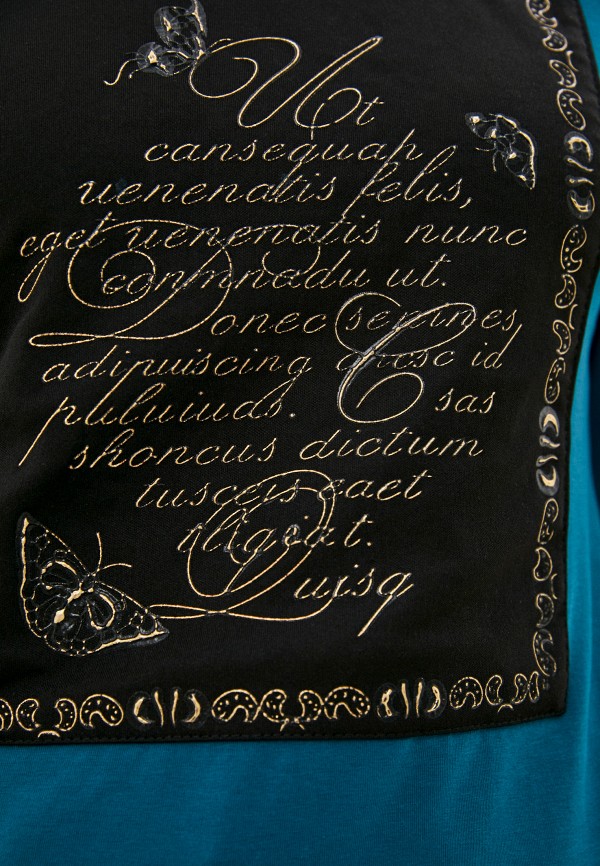 Ut
cansequah
uenenatis felis,
eget uenenatis nunc
conmnadu ut.
Donec semines,
adipuiscing
id
puluiuds. Csas
shoncus dictum
tusceis eaet
aligiat.
Quisq